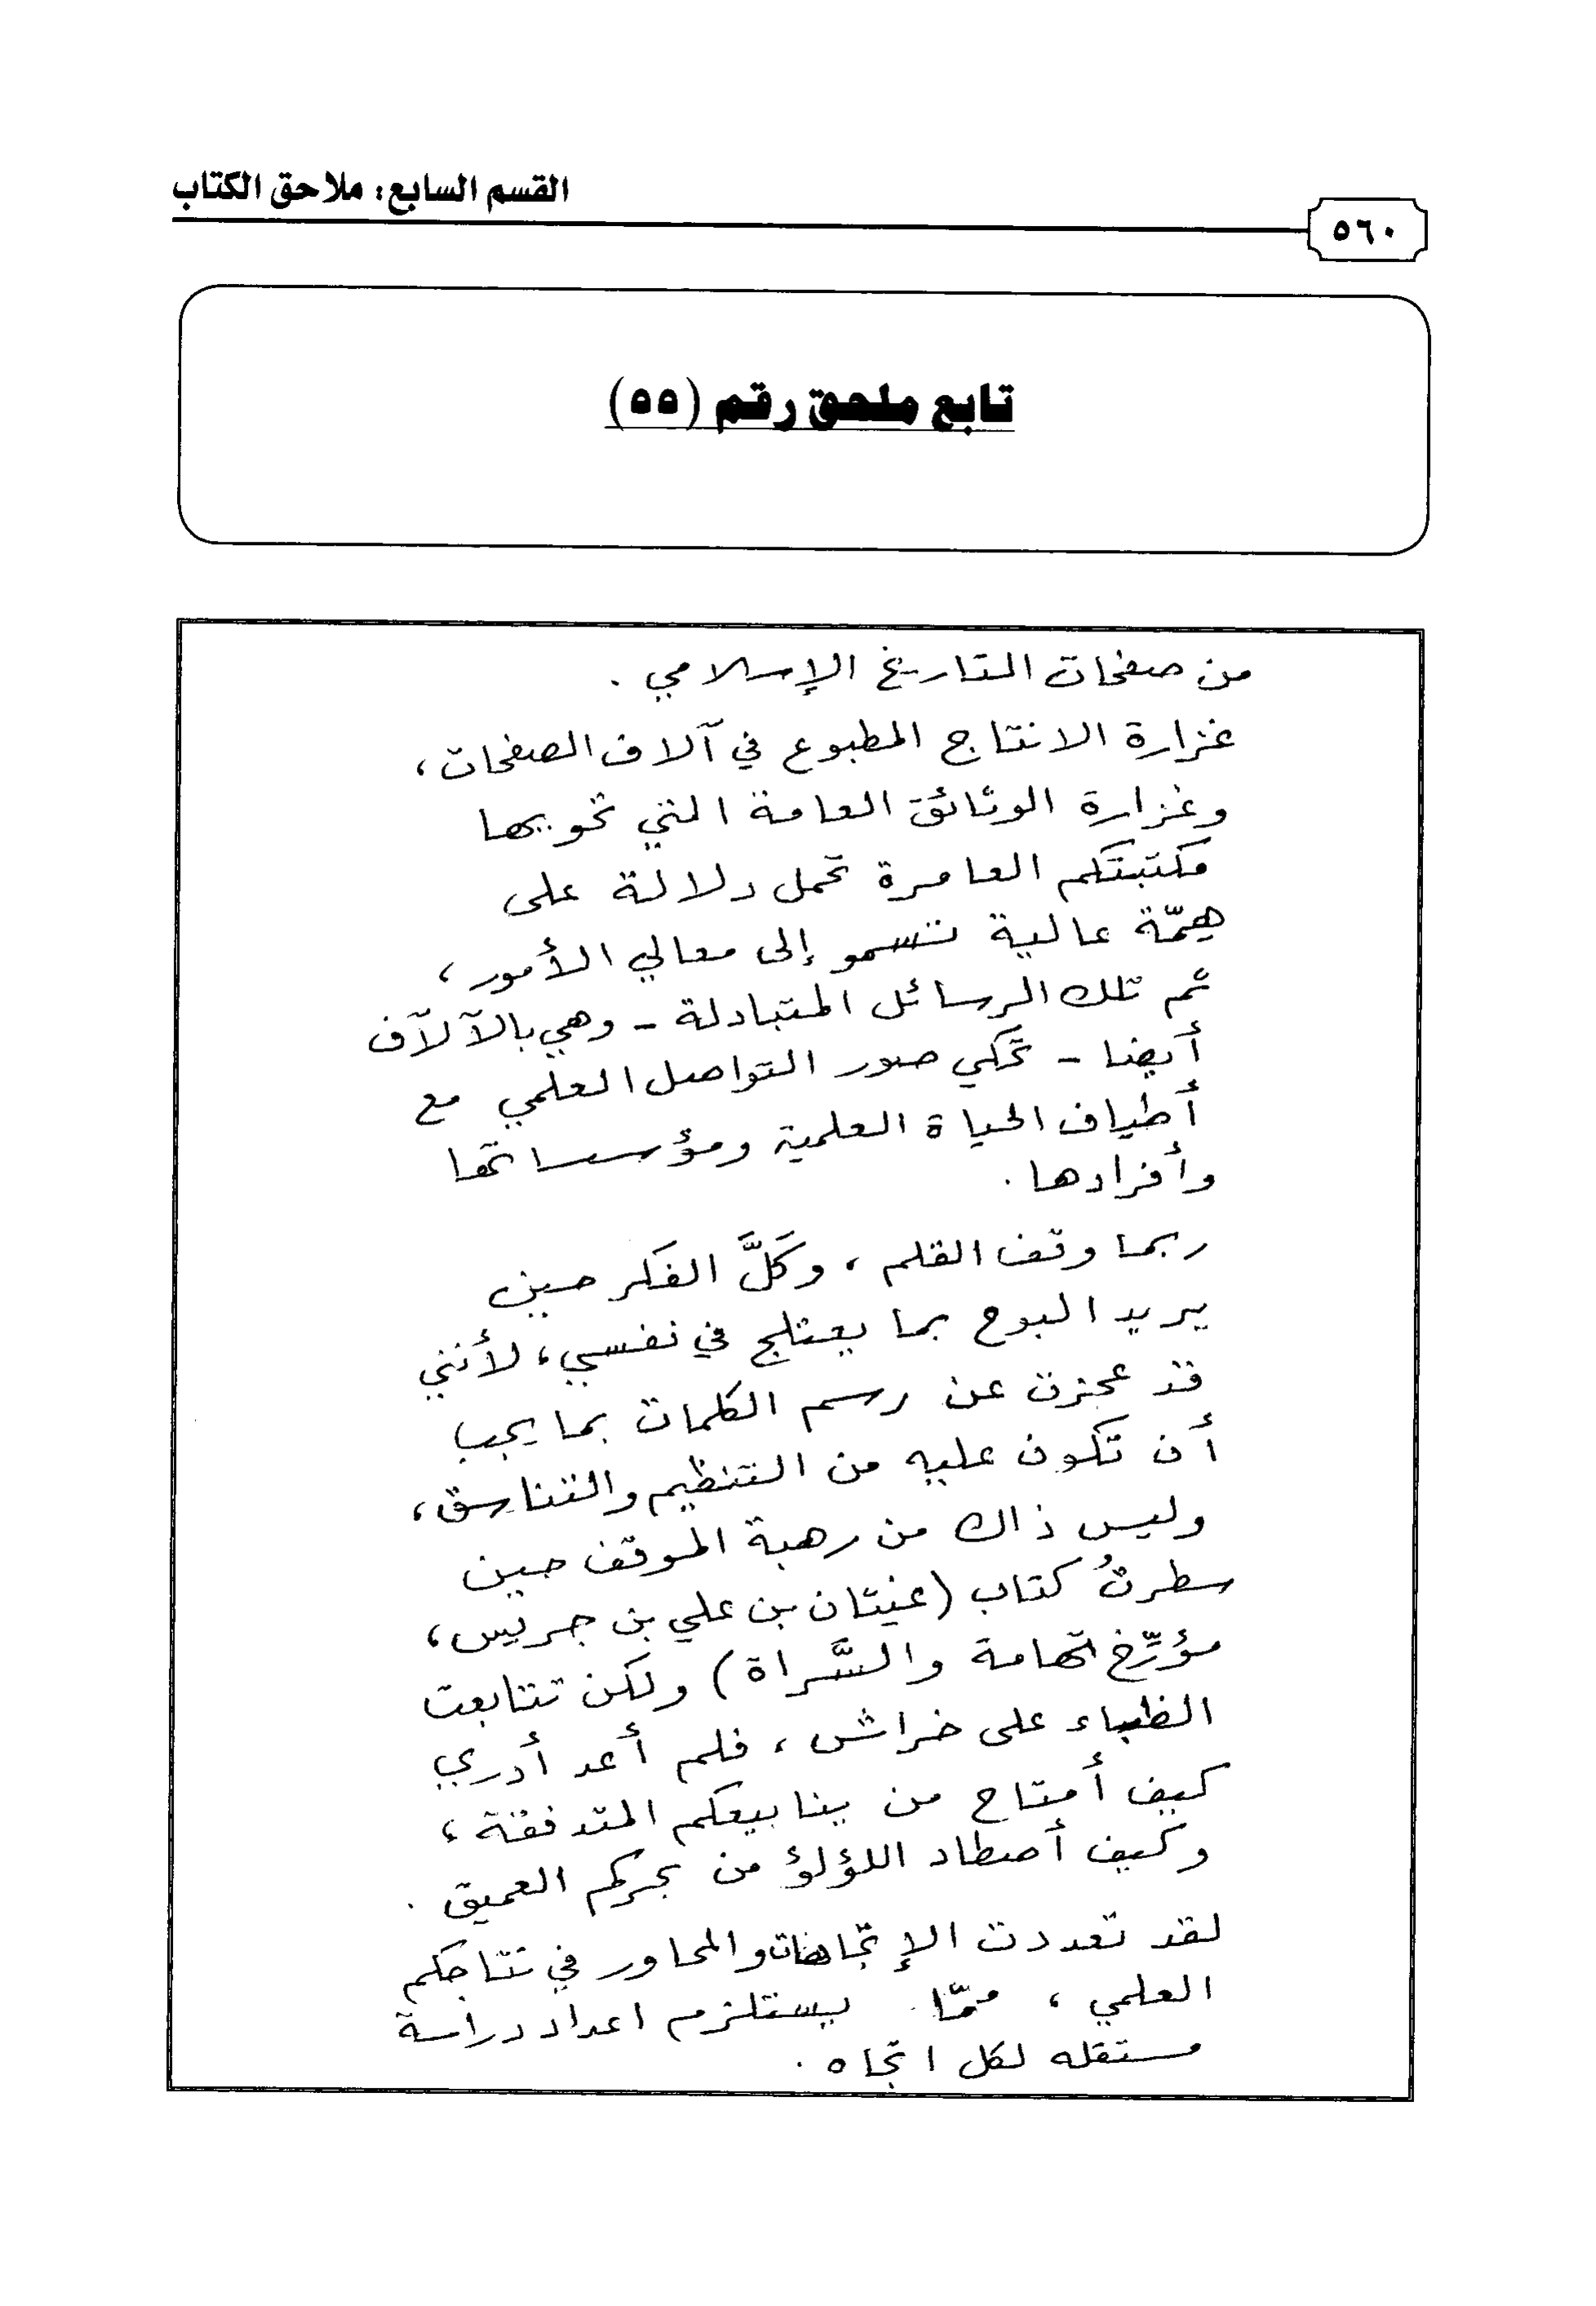 القسم السابع: ملاحق الكتاب
٥٦٠
تابع ملحق رقم (٥٥)
من صفحات التاريخ الإسلامي .
غزارة الانتاج المطبوع في آلاف الصفحات ،
وغزارة الوثائق العامة التي تحويها
مكتبتكم العامرة تحمل دلالة على
هِمّة عالية تسمو إلى معالي الأمور ،
ثم تلك الرسائل المتبادلة - وهي بالآلآف
أيضا - تحكي صور التواصل العلمي مع
أطياف الحياة العلمية ومؤسساتها
وأفرادها .
ربما وقف القلم ، وكَلَّ الفكر حين
يريد البوح بما يعتلج في نفسي ، لأنني
قد عجزت عن رسم الكلمات بما يجب
أن تكون عليه من التنظيم والتناسق ،
وليس ذاك من رهبة الموقف حين
سطرتُ كتاب (غيثان بن علي بن جريس ،
مؤرِّخ تهامة والسَّراة) ولكن تتابعت
الظباء على خراش ، فلم أعد أدري
كيف أمتاح من ينابيعكم المتدفقة ،
وكيف أصطاد اللؤلؤ من بحركم العميق .
لقد تعددت الإتجاهات والمحاور في نتاجكم
العلمي ، ممّا يستلزم اعداد دراسة
مستقله لكل اتجاه .